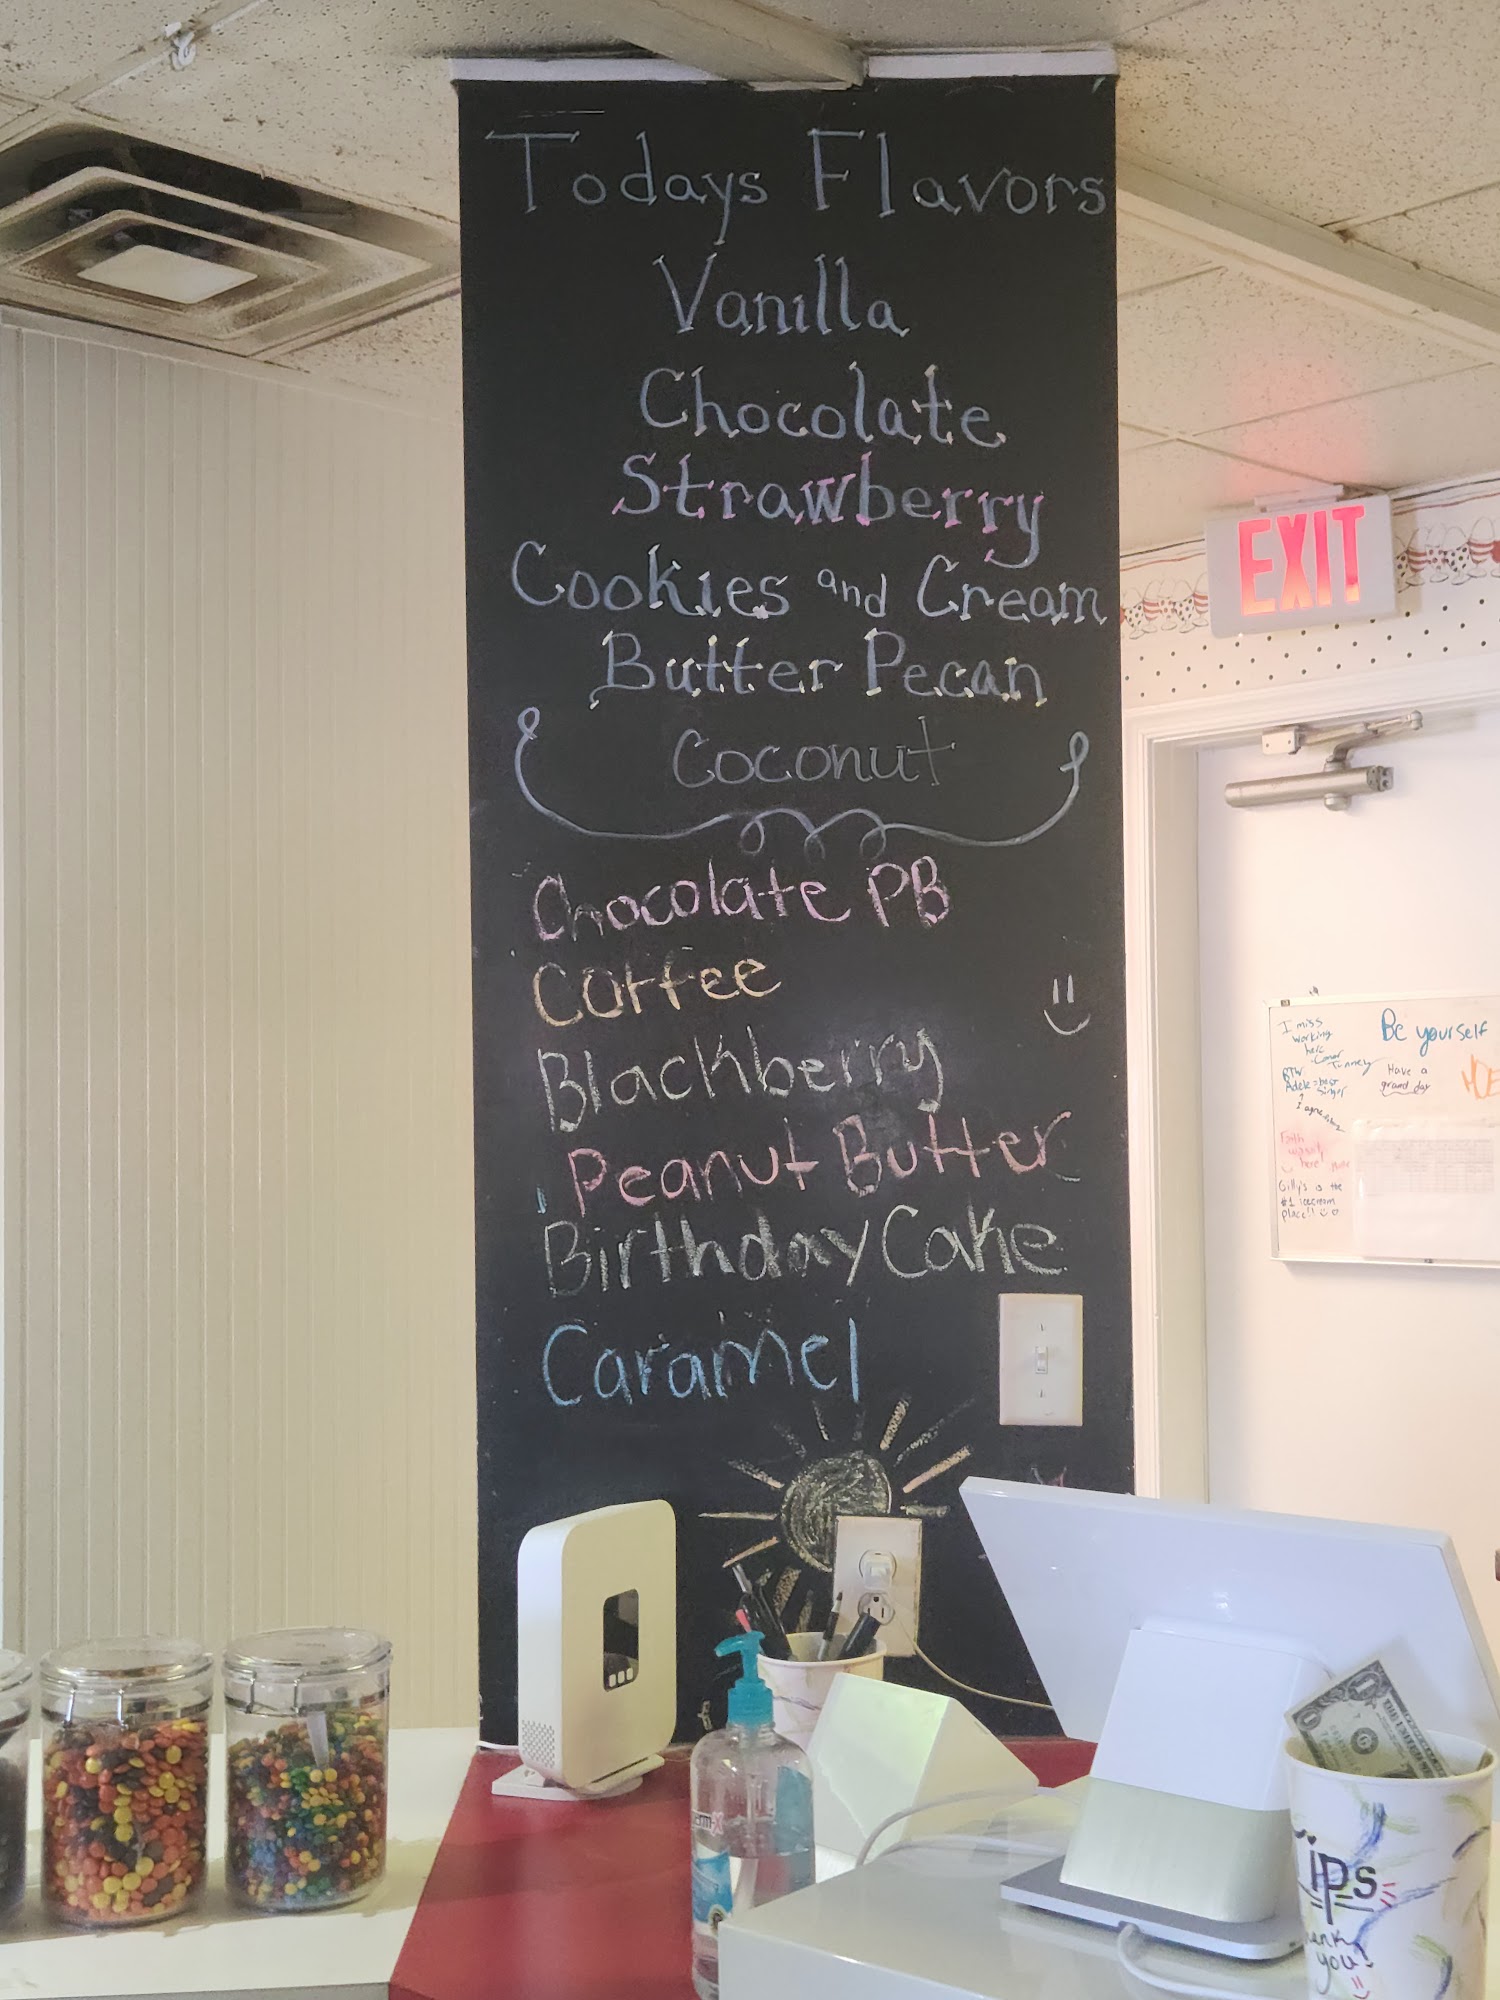 Todays Flavors
Vanilla
Chocolate
Strawberry
Cookies and Cream
Butter Pecan
Coconut
Chocolate PB
Coffee
Blackberry
Peanut Butter
Birthday Cake
Caramel
EXIT
I miss
working
here
-Conor
Tunney
BTW:
Adele = best
singer
Be yourself
Have a
grand day
Faith
wasn't
here!
Gilly's is the
#1 icecream
place!!
Tips
Thank
you!